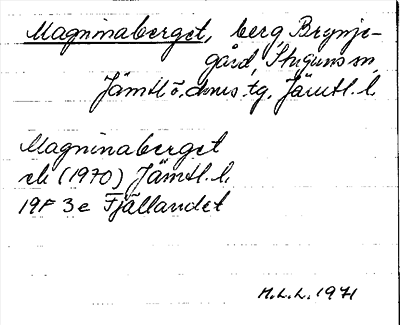 Magninaberget, berg Brynje-
gård, Stuguns sn,
Jämtl ö. dms. tg. Jämtl. l.
Magninaberget
ek (1970) Jämtl. l.
19F 3e Fjällandet
M.L.L. 1971